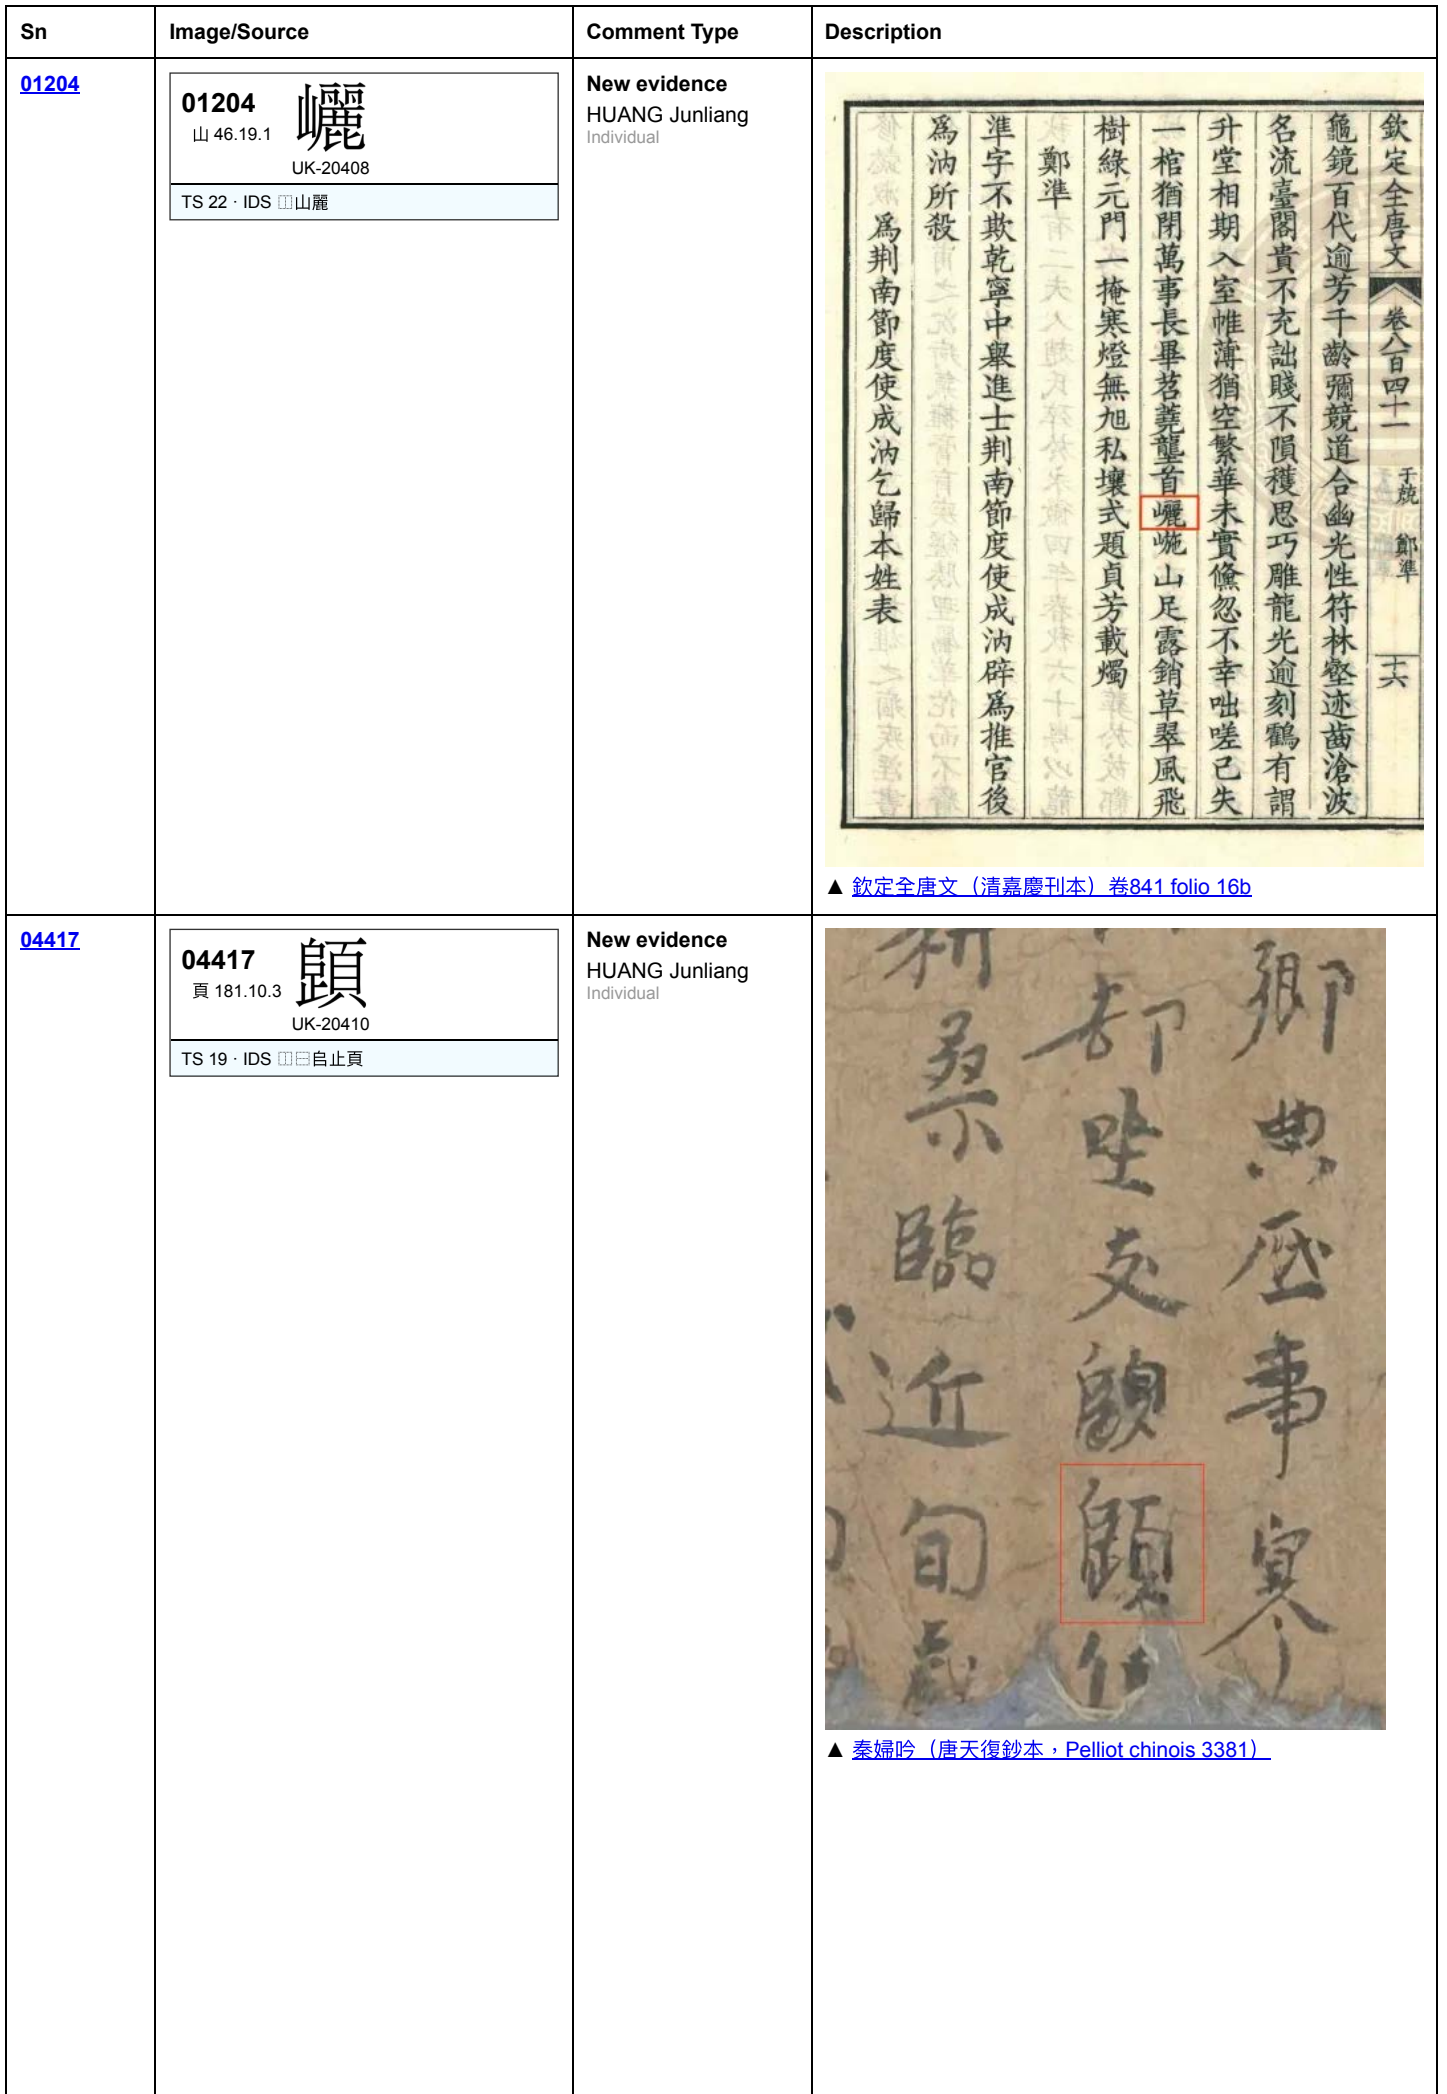 Sn Image/Source Comment Type Description
01204
01204
山 46.19.1
𡿎
UK-20408
TS 22 · IDS ⿰山麗
New evidence
HUANG Junliang
Individual
欽定全唐文 卷八百四十一 于兢 鄭準 十六
龜鏡百代逾芳千齡彌競道合幽光性符林壑迹齒滄波
名流臺閣貴不充詘賤不隕穫思巧雕龍光逾刻鶴有謂
升堂相期入室帷薄猶空繁華未實儵忽不幸咄嗟已失
一棺猶閉萬事長畢苕蕘壟首𡿎崺山足露銷草翠風飛
樹綠元門一掩寒燈無旭私壤式題貞芳載燭
鄭準
準字不欺乾寧中舉進士荆南節度使成汭辟爲推官後
爲汭所殺
爲荆南節度使成汭乞歸本姓表
▲ 欽定全唐文（清嘉慶刊本）卷841 folio 16b
04417
04417
頁 181.10.3
UK-20410
TS 19 · IDS ⿰⿱𠂤止頁
New evidence
HUANG Junliang
Individual
卿典壓事寒
部坐交
桑臨近旬
▲ 秦婦吟（唐天復鈔本，Pelliot chinois 3381）